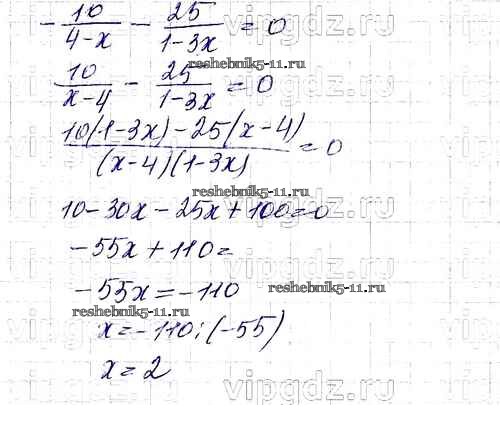 vipgdz.ru
- 10/(4-x) - 25/(1-3x) = 0
reshebnik5-11.ru
10/(x-4) - 25/(1-3x) = 0
vipgdz.ru
(10(1-3x) - 25(x-4))/((x-4)(1-3x)) = 0
reshebnik5-11.ru
10 - 30x - 25x + 100 = 0
vipgdz.ru
-55x + 110 =
-55x = -110
reshebnik5-11.ru
reshebnik5-11.ru
x = -110 : (-55)
vipgdz.ru
x = 2
vipgdz.ru